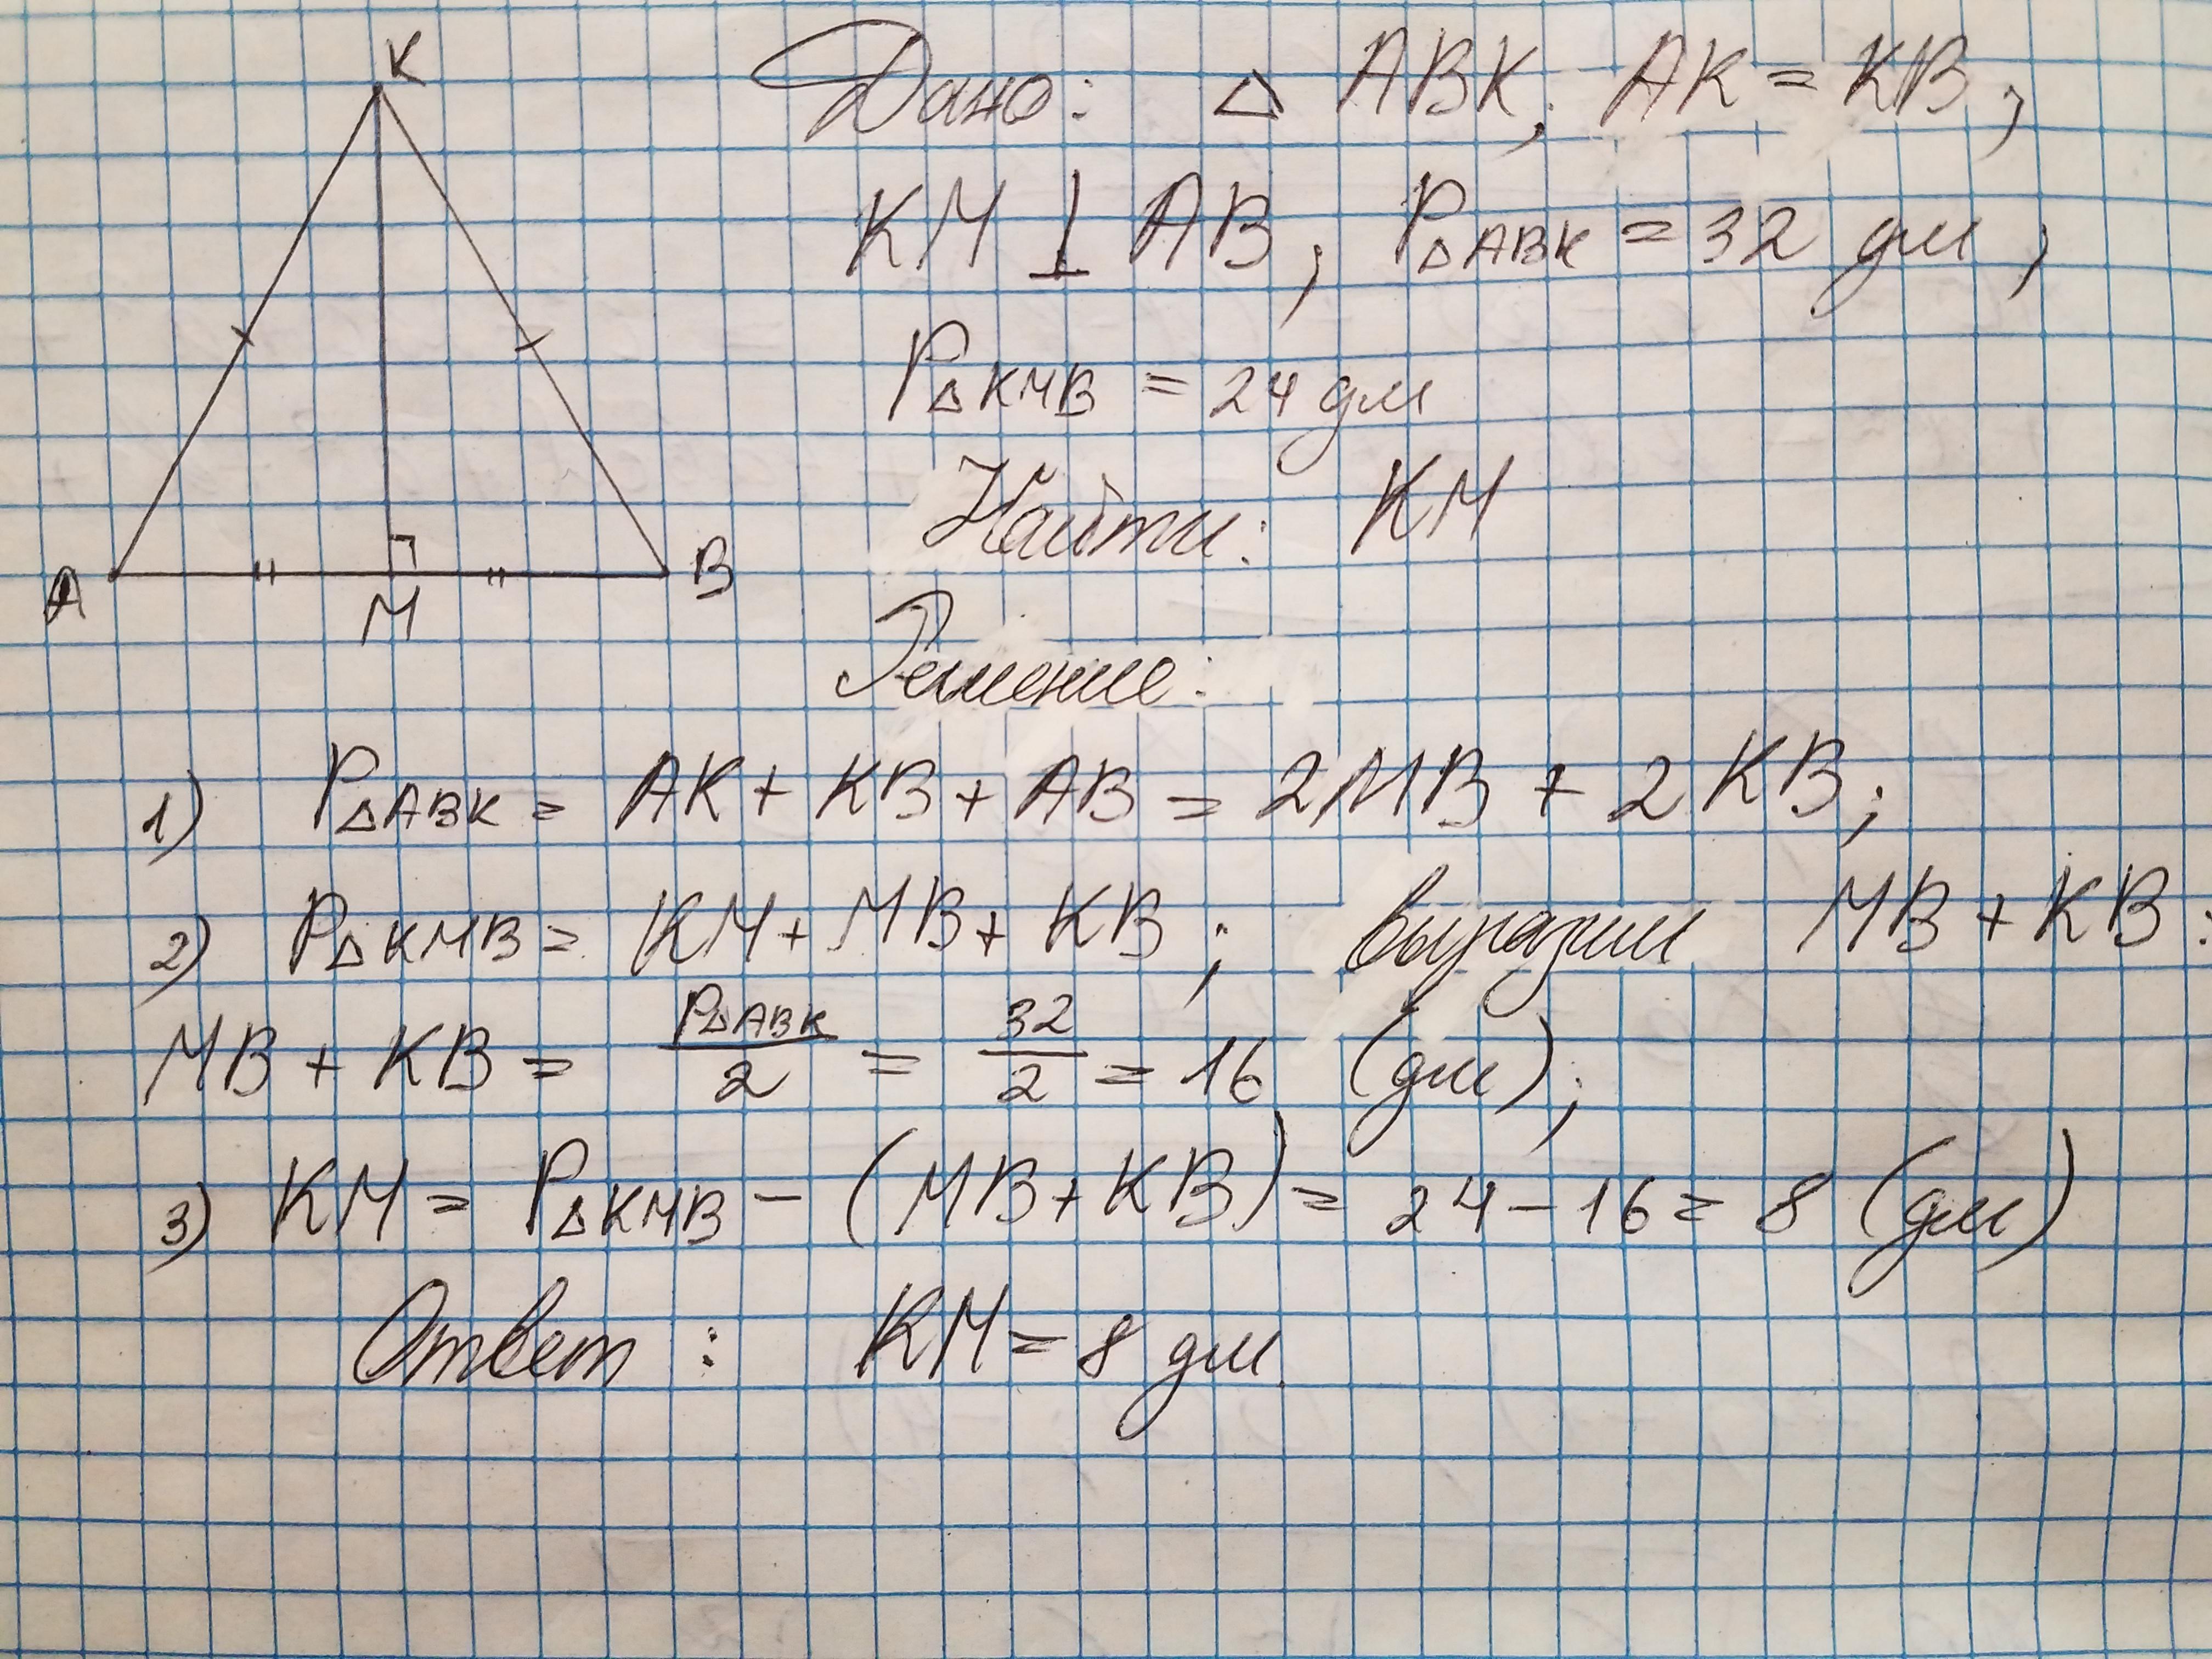 K
Дано: △ ABK; AK = KB;
KM ⊥ AB; P△ABK = 32 дм;
P△KMB = 24 дм
Найти: KM
A M B
Решение:
1) P△ABK = AK + KB + AB = 2MB + 2KB;
2) P△KMB = KM + MB + KB; выразим MB + KB:
MB + KB = P△ABK/2 = 32/2 = 16 (дм);
3) KM = P△KMB - (MB + KB) = 24 - 16 = 8 (дм)
Ответ: KM = 8 дм.